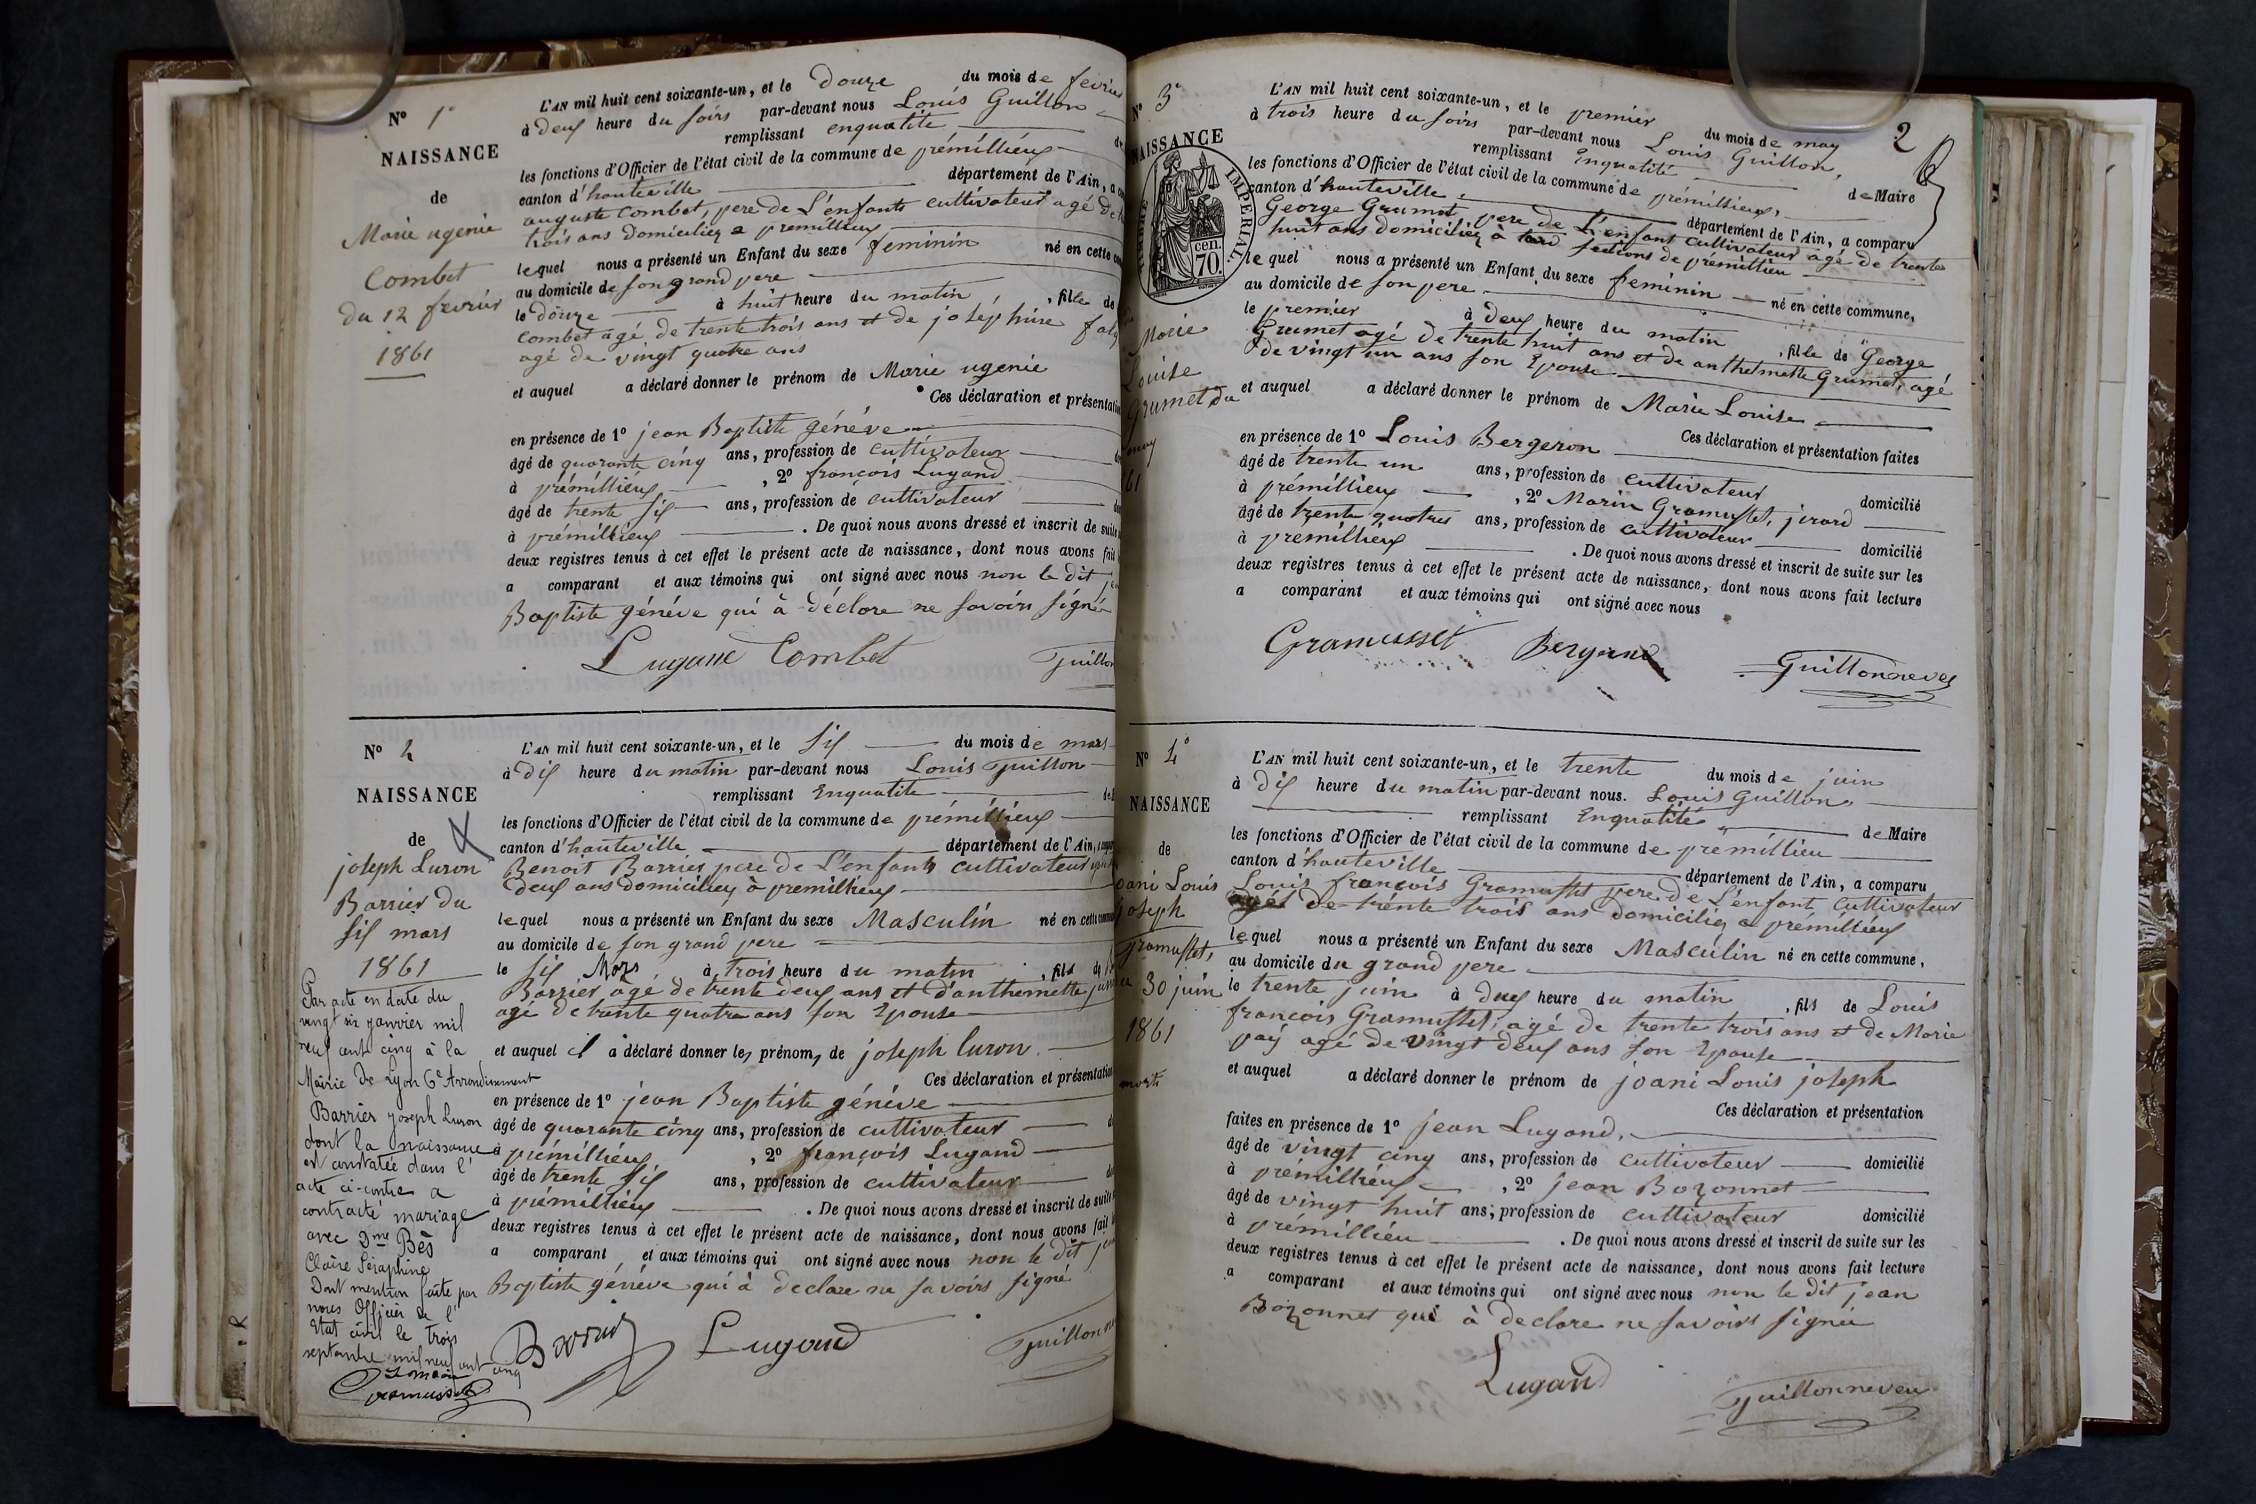 Nº 1º
NAISSANCE
de
Marie ugenie
Combet
du 12 fevrier
1861
L'AN mil huit cent soixante-un, et le douze du mois de fevrier
à deux heure du soirs par-devant nous Louis Guillon
remplissant enquatité
les fonctions d'Officier de l'état civil de la commune de prémillieux
canton d'hauteville département de l'Ain, a
auguste Combet, pere de L'enfants cultivateur agé de
trois ans domiciliez a premillieux
lequel nous a présenté un Enfant du sexe feminin né en cette
au domicile de son grand pere
le douze à huit heure du matin, fille de
Combet agé de trente trois ans et de joséphine
agé de vingt quatre ans
et auquel a déclaré donner le prénom de Marie ugenie
Ces déclaration et présentation
en présence de 1º jean Baptiste génève
âgé de quarante cinq ans, profession de cultivateur
à prémillieux, 2º françois Lugand
âgé de trente six ans, profession de cultivateur
à prémillieux. De quoi nous avons dressé et inscrit de suite
deux registres tenus à cet effet le présent acte de naissance, dont nous avons fait
a comparant et aux témoins qui ont signé avec nous non le dit
Baptiste génève qui à déclare ne savoirs signé
Lugand Combet Guillon
Nº 2
NAISSANCE
de
joseph Luron
Barrier du
six mars
1861
Par acte en date du
vingt six janvier mil
neuf cent cinq à la
Mairie de Lyon 6e Arrondissement
Barrier Joseph Luron
dont la naissance
est constatée dans l'
acte ci-contre a
contracté mariage
avec Dme Bès
Claire Séraphine
Dont mention faite par
nous Officier de l'
Etat civil le trois
septembre mil neuf cent cinq
Gramusset
L'AN mil huit cent soixante-un, et le six du mois de mars
à dix heure du matin par-devant nous Louis Guillon
remplissant Enquatité
les fonctions d'Officier de l'état civil de la commune de prémillieux
canton d'hauteville département de l'Ain,
Benoit Barrier pere de L'enfants cultivateur
deux ans domiciliez à premillieux
lequel nous a présenté un Enfant du sexe Masculin né en cette
au domicile de son grand pere
le six Mars à trois heure du matin, fils
Barrier agé de trente deux ans et d'anthemette
agé de trente quatre ans son Epouse
et auquel il a déclaré donner les prénoms de joseph luron
Ces déclaration et présentation
en présence de 1º jean Baptiste génève
âgé de quarante cinq ans, profession de cultivateur
à prémillieux, 2º françois Lugand
âgé de trente six ans, profession de cultivateur
à prémillieux. De quoi nous avons dressé et inscrit de suite
deux registres tenus à cet effet le présent acte de naissance, dont nous avons fait
a comparant et aux témoins qui ont signé avec nous non le dit
Baptiste génève qui à declare ne savoirs signé
Barrier Lugand Guillon
2
Nº 3º
NAISSANCE
TIMBRE IMPERIAL
70 cen.
Marie
Louise
Grumet du
may
61
L'AN mil huit cent soixante-un, et le premier du mois de may
à trois heure du soirs par-devant nous Louis Guillon,
remplissant Enquatité de Maire
les fonctions d'Officier de l'état civil de la commune de prémillieux,
canton d'hauteville, département de l'Ain, a comparu
George Grumet, pere de L'enfant cultivateur agé de trente
huit ans domiciliez à sections de prémillieu
lequel nous a présenté un Enfant du sexe feminin né en cette commune,
au domicile de son pere
le premier à deux heure du matin, fille de George
Grumet agé de trente huit ans et de anthelmette Grumet, agé
de vingt un ans son Epouse
et auquel a déclaré donner le prénom de Marie Louise
Ces déclaration et présentation faites
en présence de 1º Louis Bergeron
âgé de trente un ans, profession de cultivateur domicilié
à prémillieux, 2º Marin Gramusset, jirard
âgé de trente quatres ans, profession de cultivateur domicilié
à premillieux. De quoi nous avons dressé et inscrit de suite sur les
deux registres tenus à cet effet le présent acte de naissance, dont nous avons fait lecture
a comparant et aux témoins qui ont signé avec nous
Gramusset Guillonneveu
Nº 4º
NAISSANCE
de
joani Louis
joseph
Gramusset,
30 juin
1861
L'AN mil huit cent soixante-un, et le trente du mois de juin
à dix heure du matin par-devant nous. Louis Guillon,
remplissant Enquatité de Maire
les fonctions d'Officier de l'état civil de la commune de premillieu
canton d'hauteville département de l'Ain, a comparu
Louis françois Gramusset pere de L'enfant cultivateur
agét de trente trois ans domiciliez a prémillieux
lequel nous a présenté un Enfant du sexe Masculin né en cette commune,
au domicile du grand pere
le trente juin à deux heure du matin, fils de Louis
françois Gramusset, agé de trente trois ans et de Marie
paÿ agé de vingt deux ans son Epouse
et auquel a déclaré donner le prénom de joani Louis joseph
Ces déclaration et présentation
faites en présence de 1º jean Lugand,
âgé de vingt cinq ans, profession de cultivateur domicilié
à prémillieux, 2º jean Bozonnet
âgé de vingt huit ans, profession de cultivateur domicilié
à prémillieu. De quoi nous avons dressé et inscrit de suite sur les
deux registres tenus à cet effet le présent acte de naissance, dont nous avons fait lecture
a comparant et aux témoins qui ont signé avec nous non le dit jean
Bozonnet qui à declare ne savoirs signée
Lugand Guillonneveu